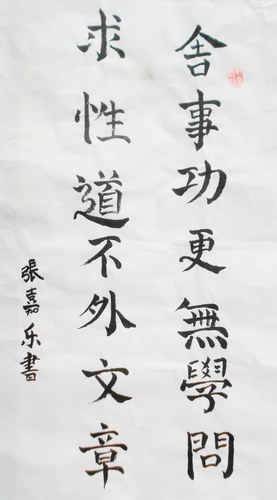 舍事功更無學問
求性道不外文章
張嘉乐書